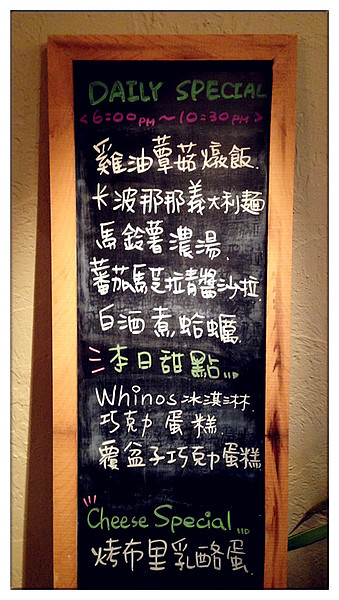 DAILY SPECIAL
<6:00PM~10:30PM>
雞油蕈菇燉飯.
卡波那那義大利麵
馬鈴薯濃湯.
蕃茄馬芝拉青醬沙拉.
白酒煮蛤蠣.
本日甜點...
Whinos冰淇淋.
巧克力蛋糕.
覆盆子巧克力蛋糕
Cheese Special...
烤布里乳酪蛋.